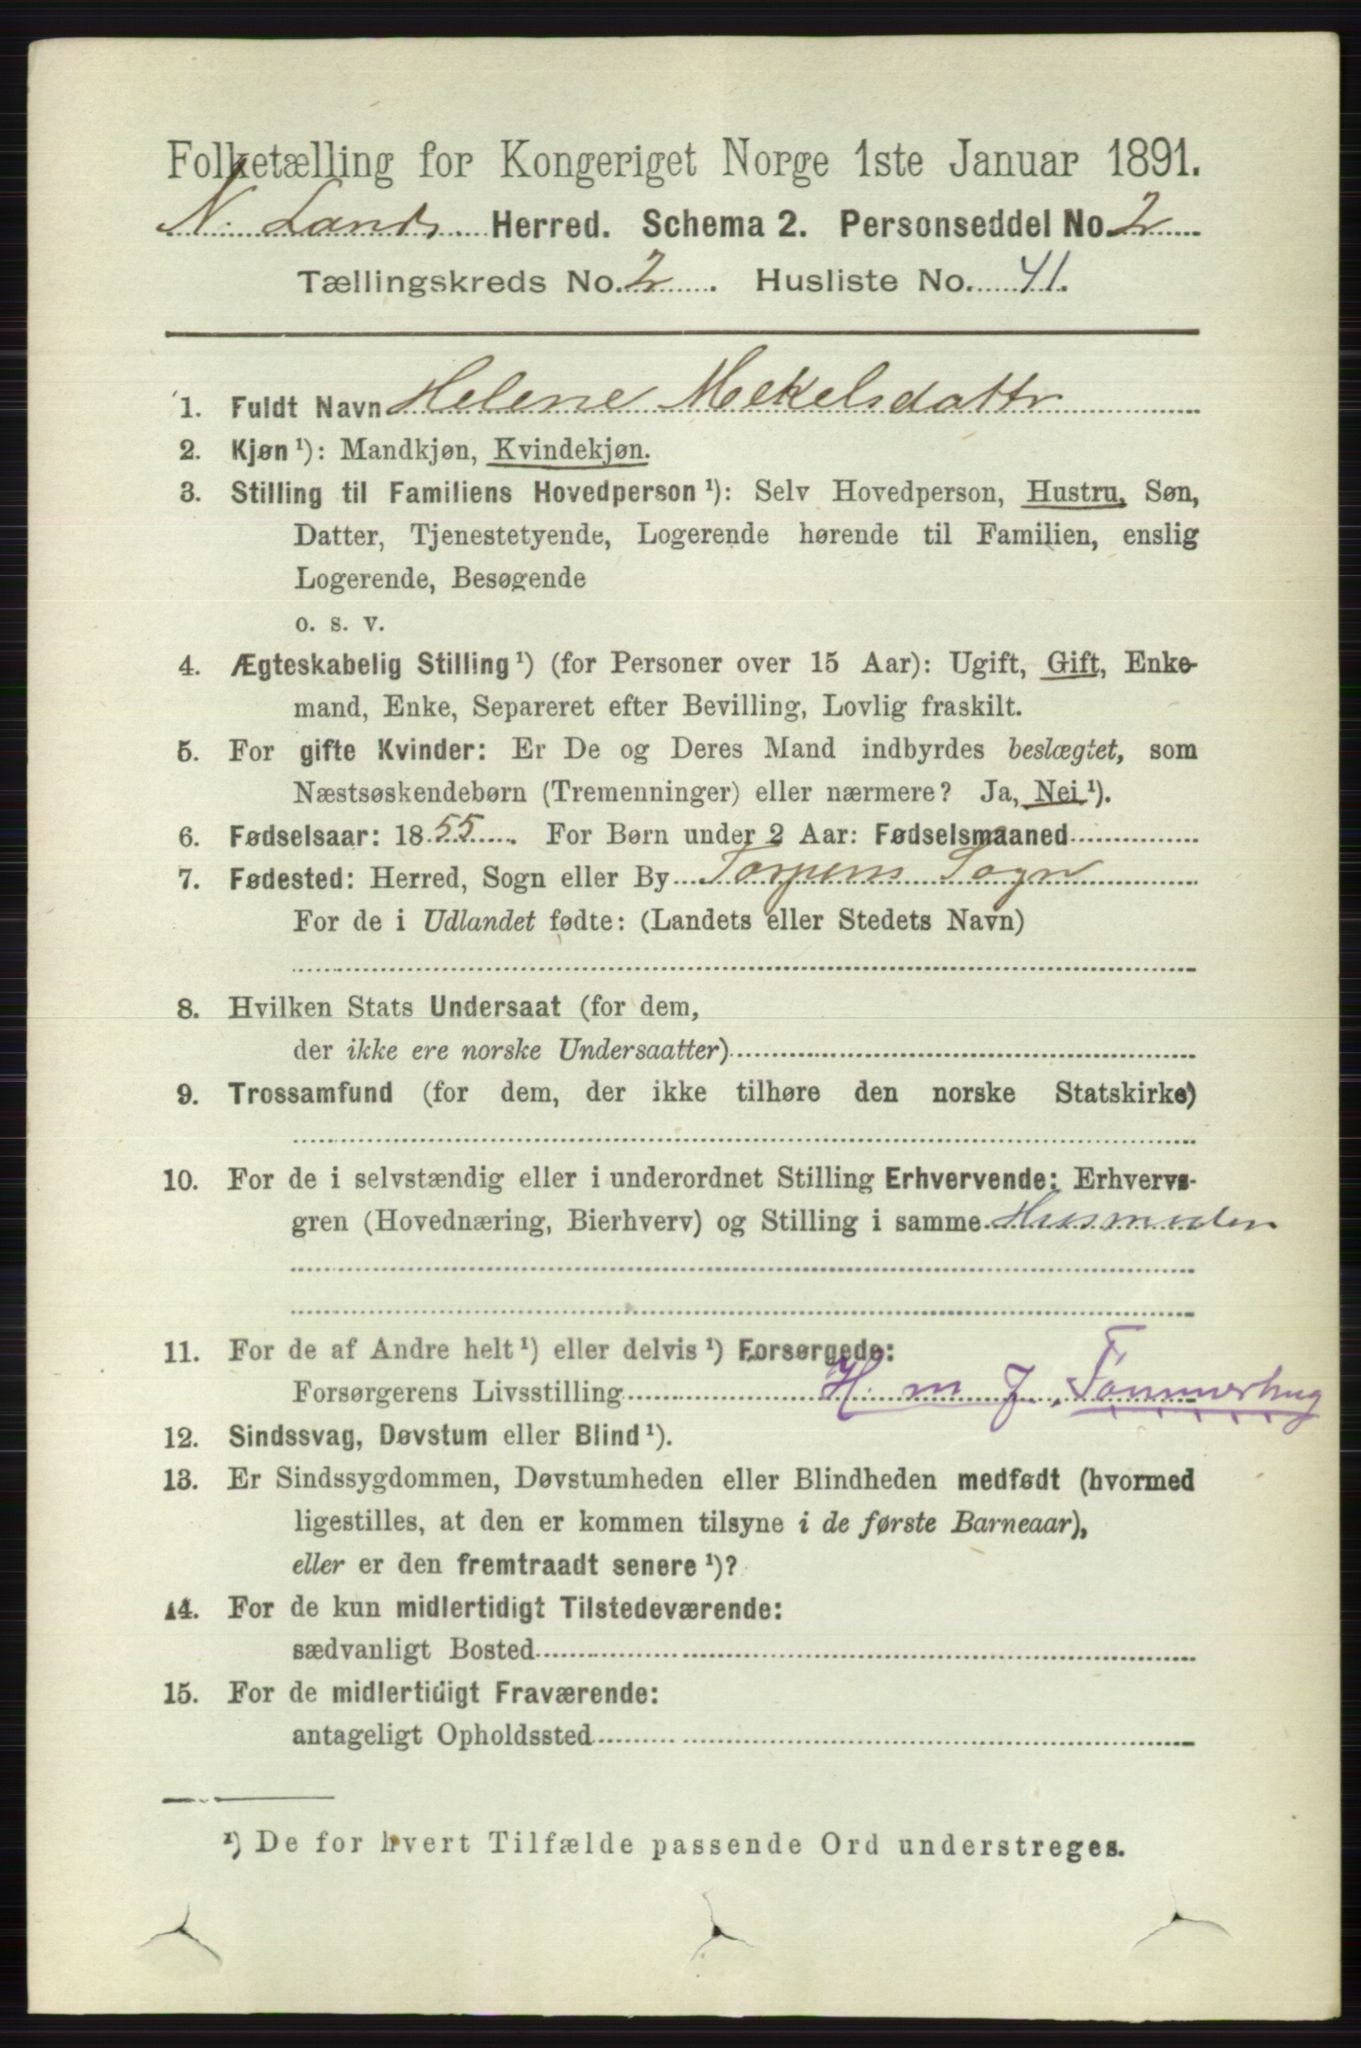 Folketælling for Kongeriget Norge 1ste Januar 1891.
N. Lands Herred. Schema 2. Personseddel No. 2
Tællingskreds No. 2. Husliste No. 41.
1. Fuldt Navn Helene Mekelsdattr
2. Kjøn ¹): Mandkjøn, Kvindekjøn.
3. Stilling til Familiens Hovedperson ¹): Selv Hovedperson, Hustru, Søn,
Datter, Tjenestetyende, Logerende hørende til Familien, enslig
Logerende, Besøgende
o. s. v.
4. Ægteskabelig Stilling ¹) (for Personer over 15 Aar): Ugift, Gift, Enke-
mand, Enke, Separeret efter Bevilling, Lovlig fraskilt.
5. For gifte Kvinder: Er De og Deres Mand indbyrdes beslægtet, som
Næstsøskendebørn (Tremenninger) eller nærmere? Ja, Nei ¹).
6. Fødselsaar: 1855. For Børn under 2 Aar: Fødselsmaaned
7. Fødested: Herred, Sogn eller By Torpens Sogn
For de i Udlandet fødte: (Landets eller Stedets Navn)
8. Hvilken Stats Undersaat (for dem,
der ikke ere norske Undersaatter)
9. Trossamfund (for dem, der ikke tilhøre den norske Statskirke)
10. For de i selvstændig eller i underordnet Stilling Erhvervende: Erhvervs-
gren (Hovednæring, Bierhverv) og Stilling i samme Husmoder
11. For de af Andre helt ¹) eller delvis ¹) Forsørgede:
Forsørgerens Livsstilling H. m J. Tømmerhug
12. Sindssvag, Døvstum eller Blind ¹).
13. Er Sindssygdommen, Døvstumheden eller Blindheden medfødt (hvormed
ligestilles, at den er kommen tilsyne i de første Barneaar),
eller er den fremtraadt senere ¹)?
14. For de kun midlertidigt Tilstedeværende:
sædvanligt Bosted
15. For de midlertidigt Fraværende:
antageligt Opholdssted
¹) De for hvert Tilfælde passende Ord understreges.